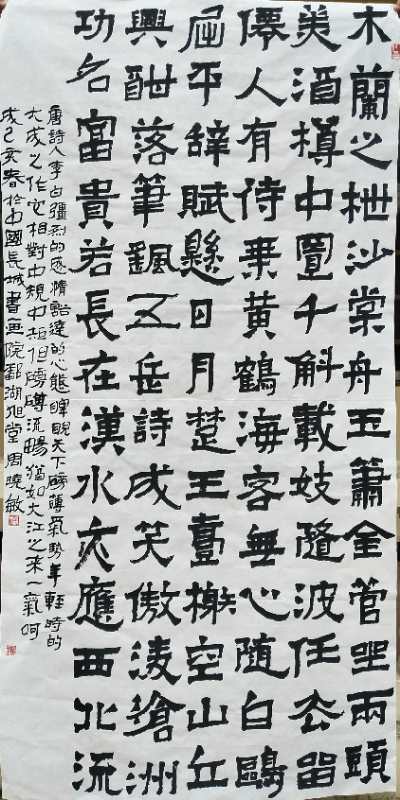 木蘭之枻沙棠舟玉簫金管坐兩頭
美酒樽中置千斛載妓隨波任去留
僊人有待乗黃鶴海客無心随白鷗
屈平辭賦懸日月楚王臺榭空山丘
興酣落筆颻五岳詩成笑傲淩滄洲
功名富貴若長在漢水亦應西北流
唐詩人李白彊烈的感情豁達的心態睥睨天下磅薄氣勢年輕時的
大成之作它相對中規中矩但磅礴流暢猶如大江之来一氣呵
成己亥春於中國長城書画院鄱湖旭堂周曉敏